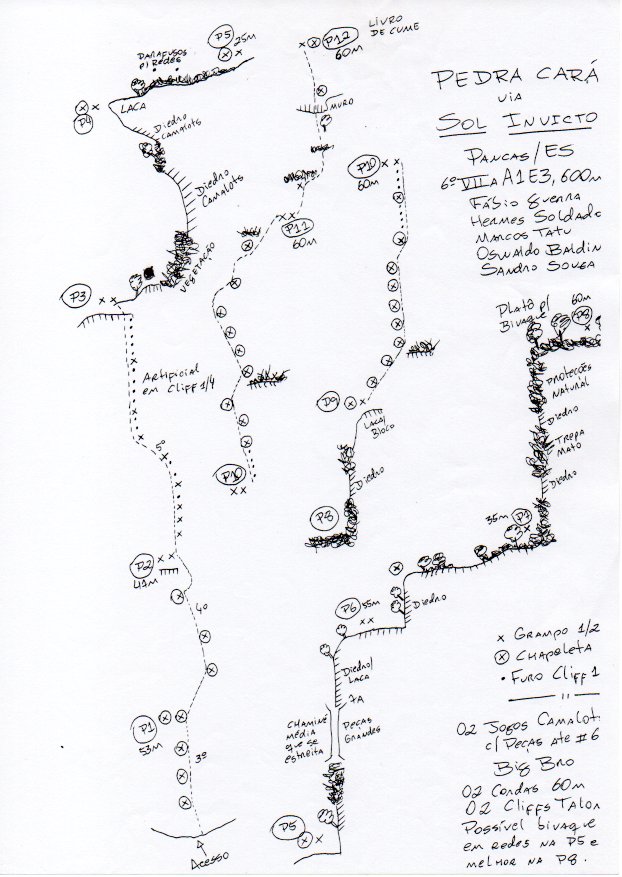 PEDRA CARÁ
VIA
SOL INVICTO
PANCAS/ES
6º VIIa A1E3, 600m
Fábio Guerra
Hermes Soldado
Marcos Tatu
Oswaldo Baldin
Sandro Souza
P5
25m
PARAFUSOS
P/ REDES
P4
LACA
Diedro
Camalots
Diedro
Camalots
VEGETAÇÃO
P3
Artificial
em Cliff 1/4
5º
P2
41m
4º
P1
53m
3º
Acesso
P12
60m
LIVRO
DE CUME
MURO
P11
60m
P10
P10
60m
P9
LACA/
Bloco
Diedro
P8
Platô p/
Bivaque
60m
P8
Proteções
Natural
Diedro
Trepa
Mato
Diedro
35m
P7
Diedro
P6
55m
Diedro/
LACA
7A
CHAMINÉ
média
que se
estreita
Peças
Grandes
P5
x Grampo 1/2
Chapeleta
• Furo Cliff 1
02 Jogos Camalot.
c/ Peças até #6
Big Bro
02 Cordas 60m
02 Cliffs Talon
Possível bivaque
em redes na P5 e
melhor na P8.